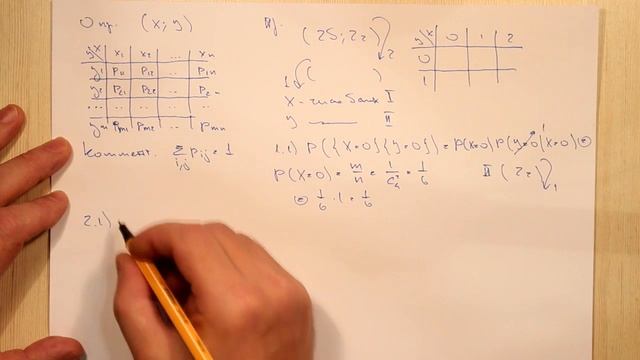 Опр. (x; y)
y\x x₁ x₂ ... xₙ
y₁ p₁₁ p₁₂ ... p₁ₙ
y₂ p₂₁ p₂₂ ... p₂ₙ
... ... ... ...
yₘ pₘ₁ pₘ₂ ... pₘₙ
коммент. Σ pᵢⱼ = 1
i,j
2.1)
(2S; 2z) 2
1 ( )
x - число бел I
y — II
y\x 0 1 2
0
1
1.1) P({x=0}{y=0}) = P(x=0) P(y=0|x=0) ⊜
1
P(x=0) = m/n = 1/C₄² = 1/6
II (2z) 1
⊜ 1/6 · 1 = 1/6